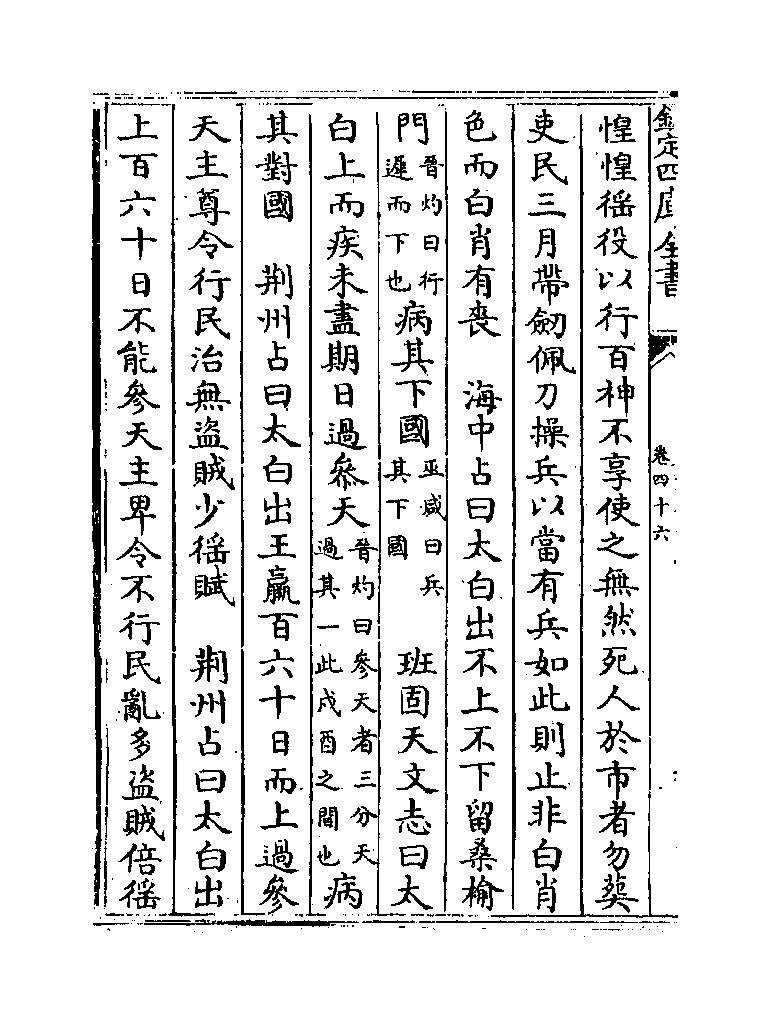 欽定四庫全書
卷四十六
惶惶徭役以行百神不享使之無然死人於市者勿葬
吏民三月帶劒佩刀操兵以當有兵如此則止非白肖
色而白肖有喪　海中占曰太白出不上不下留桑榆
門晉灼曰行遲而下也病其下國巫咸曰兵其下國　班固天文志曰太
白上而疾未盡期日過叅天晉灼曰參天者三分天過其一此戍酉之間也病
其對國　荆州占曰太白出王羸百六十日而上過參
天主尊令行民治無盜賊少徭賦　荆州占曰太白出
上百六十日不能參天主卑令不行民亂多盜賊倍徭